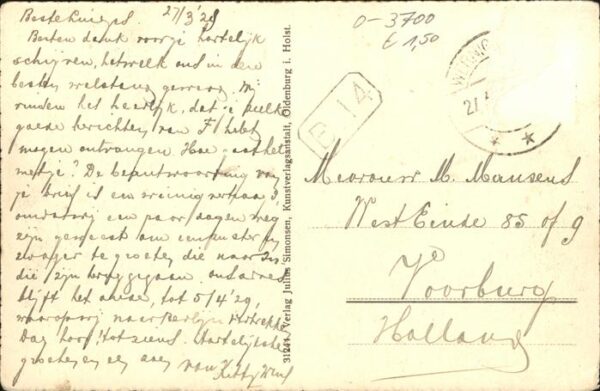 27/3 '29
Beste
Besten dank voor je hartelijk
schrijven, hetwelk ons in den
besten welstand gewerd. Wij
vinden het heerlijk, dat je zulke
goede berichten van F. hebt
mogen ontvangen. Hoe is het met
De beantwoording van
je brief is een weinig vertraagd,
omdat wij een paar dagen weg
zijn geweest om en
zwager te groeten die naar
die zijn teruggegaan ons adres
blijft het oude, tot 5/4 '29,
waarop wij naar Berlijn vertrekken
Dag hoor! tot ziens. Hartelijkste
groeten en een van
31244 Verlag Julius Simonsen, Kunstverlagsanstalt, Oldenburg i. Holst.
0-3700
£ 1,50
B 14
27
Mevrouw M. Mansens
West Einde 85 of 9
Voorburg
Holland